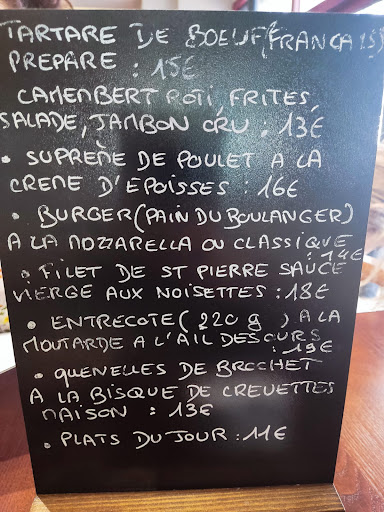 TARTARE DE BOEUF (FRANCAIS)
PREPARE : 15€
CAMENBERT ROTI, FRITES,
SALADE, JAMBON CRU : 13€
• SUPREME DE POULET A LA
CREME D'EPOISSES : 16€
• BURGER (PAIN DU BOULANGER)
A LA MOZZARELLA OU CLASSIQUE
: 14€
• FILET DE ST PIERRE SAUCE
VIERGE AUX NOISETTES : 18€
• ENTRECOTE (220 g) A LA
MOUTARDE A L'AIL DES OURS
: 19€
• QUENELLES DE BROCHET
A LA BISQUE DE CREVETTES
MAISON : 13€
• PLATS DU JOUR : 11€